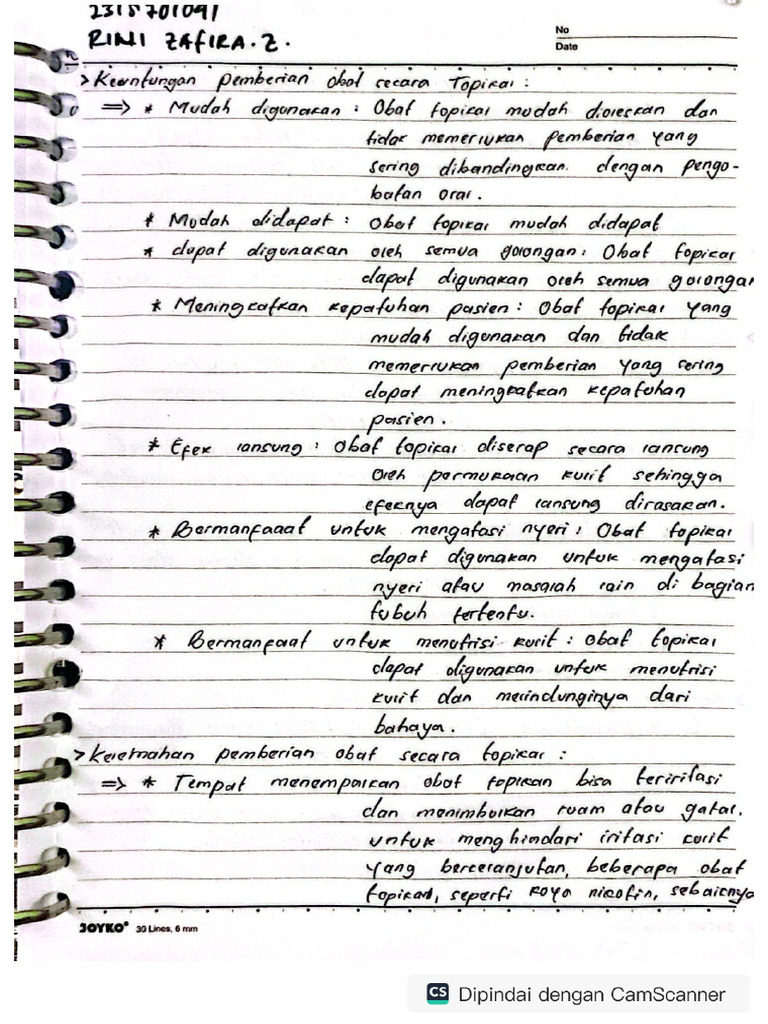 2315701091
RINI ZAFIRA.Z.
No
Date
> Keuntungan pemberian obat secara Topikal :
=> * Mudah digunakan : Obat topikal mudah dioleskan dan
tidak memerlukan pemberian yang
sering dibandingkan dengan pengo-
batan oral.
* Mudah didapat : Obat topikal mudah didapat
* dapat digunakan oleh semua golongan : Obat topikal
dapat digunakan oleh semua golongan
* Meningkatkan kepatuhan pasien : Obat topikal yang
mudah digunakan dan tidak
memerlukan pemberian yang sering
dapat meningkatkan kepatuhan
pasien.
* Efek lansung : Obat topikal diserap secara lansung
oleh permukaan kulit sehingga
efeknya dapat lansung dirasakan.
* Bermanfaaat untuk mengatasi nyeri : Obat topikal
dapat digunakan untuk mengatasi
nyeri atau masalah lain di bagian
tubuh tertentu.
* Bermanfaat untuk menutrisi kulit : obat topikal
dapat digunakan untuk menutrisi
kulit dan melindunginya dari
bahaya.
> Kelemahan pemberian obat secara topikal :
=> * Tempat menempalkan obat topikan bisa teriritasi
dan menimbulkan ruam atau gatal,
untuk menghindari iritasi kulit
yang berkelanjutan, beberapa obat
topikal, seperti koyo nikotin, sebaiknya
JOYKO® 30 Lines, 6 mm
CS Dipindai dengan CamScanner